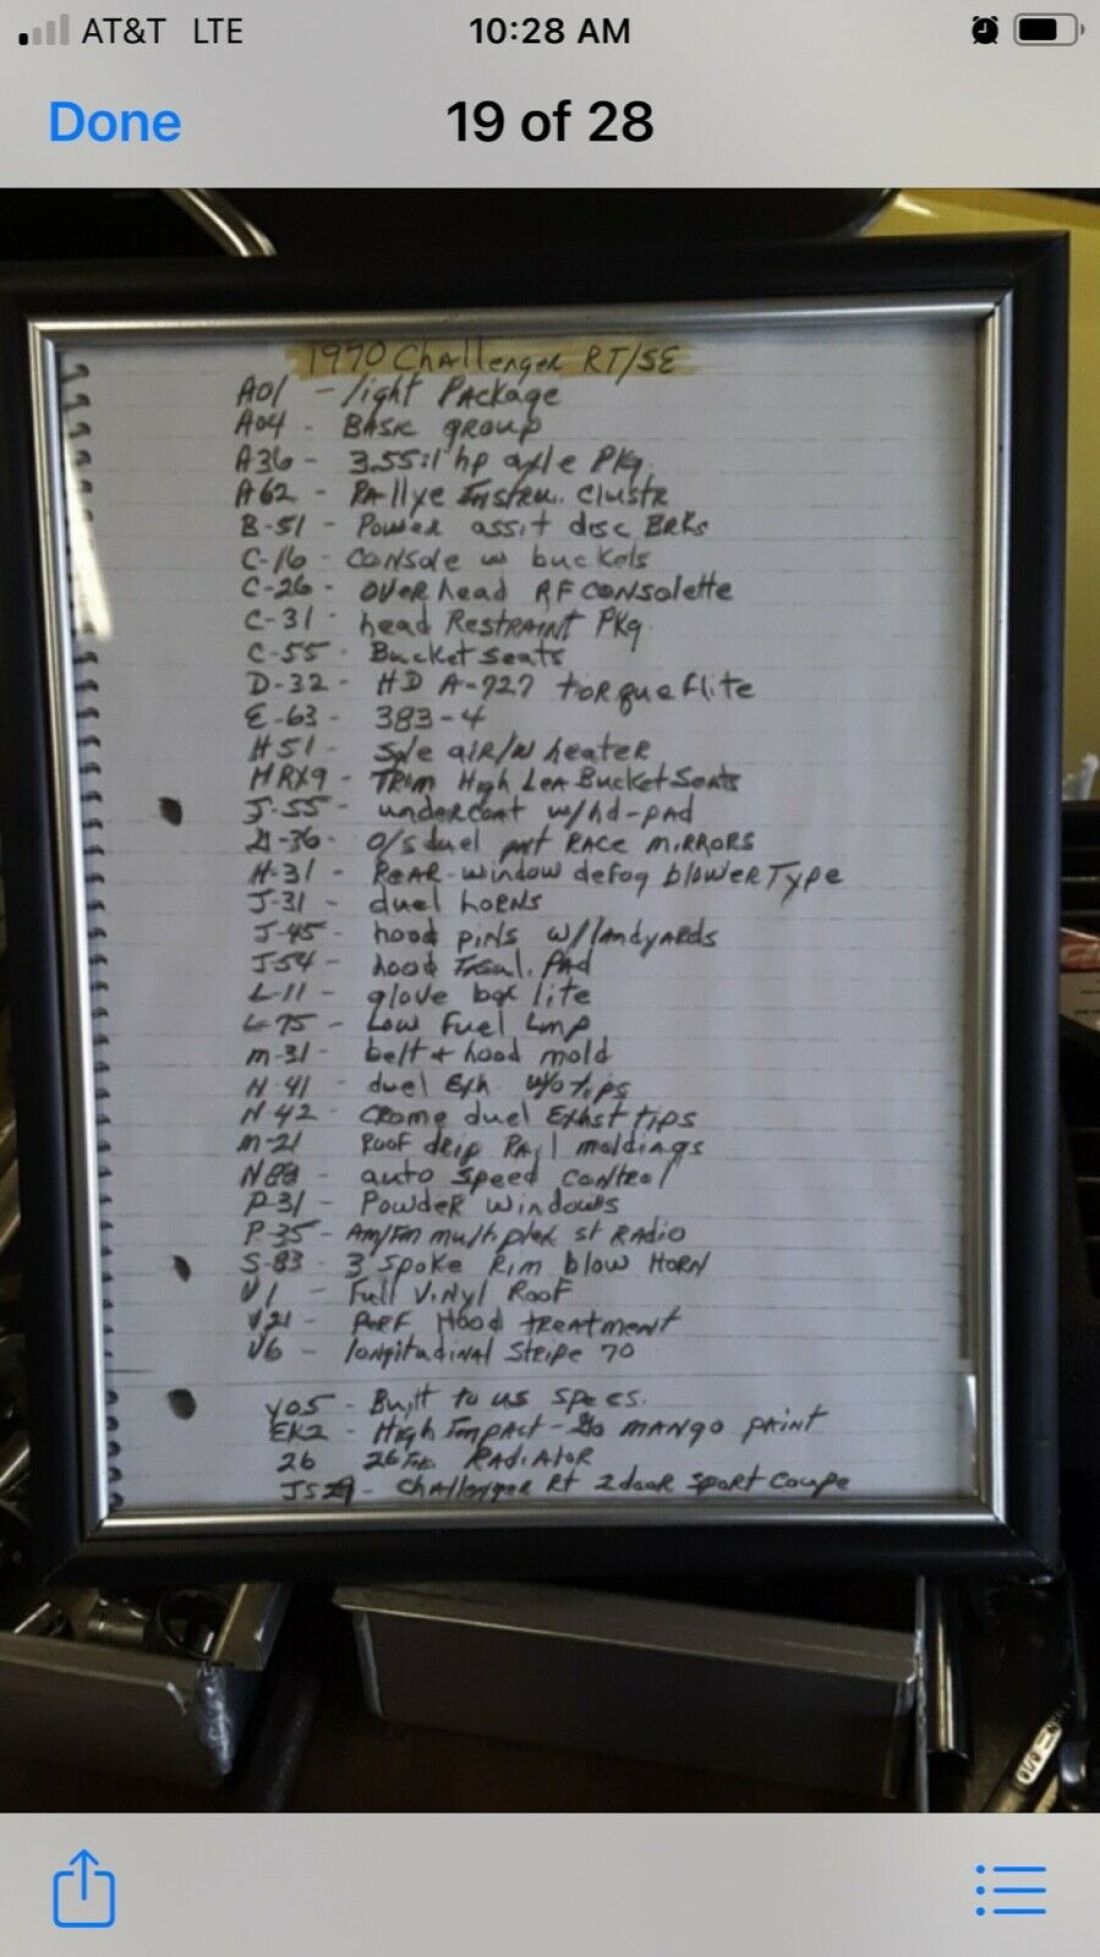 AT&T LTE 10:28 AM
Done 19 of 28
1970 Challenger RT/SE
A01 - light Package
A04 - Basic group
A36 - 3.55:1 hp axle Pkg.
A62 - Rallye Instru. Clustr
B-51 - Power assit disc BRKs
C-16 - Console w buckets
C-26 - Overhead RF Consolette
C-31 - head Restraint Pkg.
C-55 - Bucket seats
D-32 - HD A-727 torqueflite
E-63 - 383-4
H51 - air/w heater
HRX9 - Trim High Lea Bucket Seats
J-55 - undercoat w/hd-pad
-36 - o/s duel pnt Race mirrors
H-31 - Rear window defog blower Type
J-31 - duel horns
J-45 - hood pins w/landyards
J54 - hood Pad
L-11 - glove box lite
L-75 - Low Fuel Lmp
m-31 - belt + hood mold
N-41 - duel Exh. w/o tips
N-42 - Crome duel Exhst tips
m-21 Roof drip Rail moldings
N88 - auto speed control
P-31 - Powder windows
P-35 - Am/Fm multiplex st Radio
S-83 - 3 spoke Rim blow Horn
V1 - Full Vinyl Roof
V21 - Perf Hood treatment
V6 - longitudinal Stripe 70
Y05 - Built to us specs.
EK2 - High Impact - Go mango paint
26 26 Radiator
JS29 - Challenger Rt 2 door sport coupe